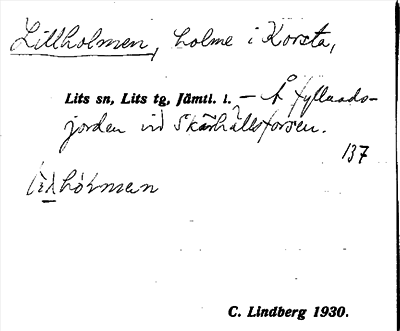 Lillholmen, holme i Korsta,
Lits sn, Lits tg, Jämtl. l. – Å fyllnads-
jorden vid Skärhällsforsen.
137
C. Lindberg 1930.